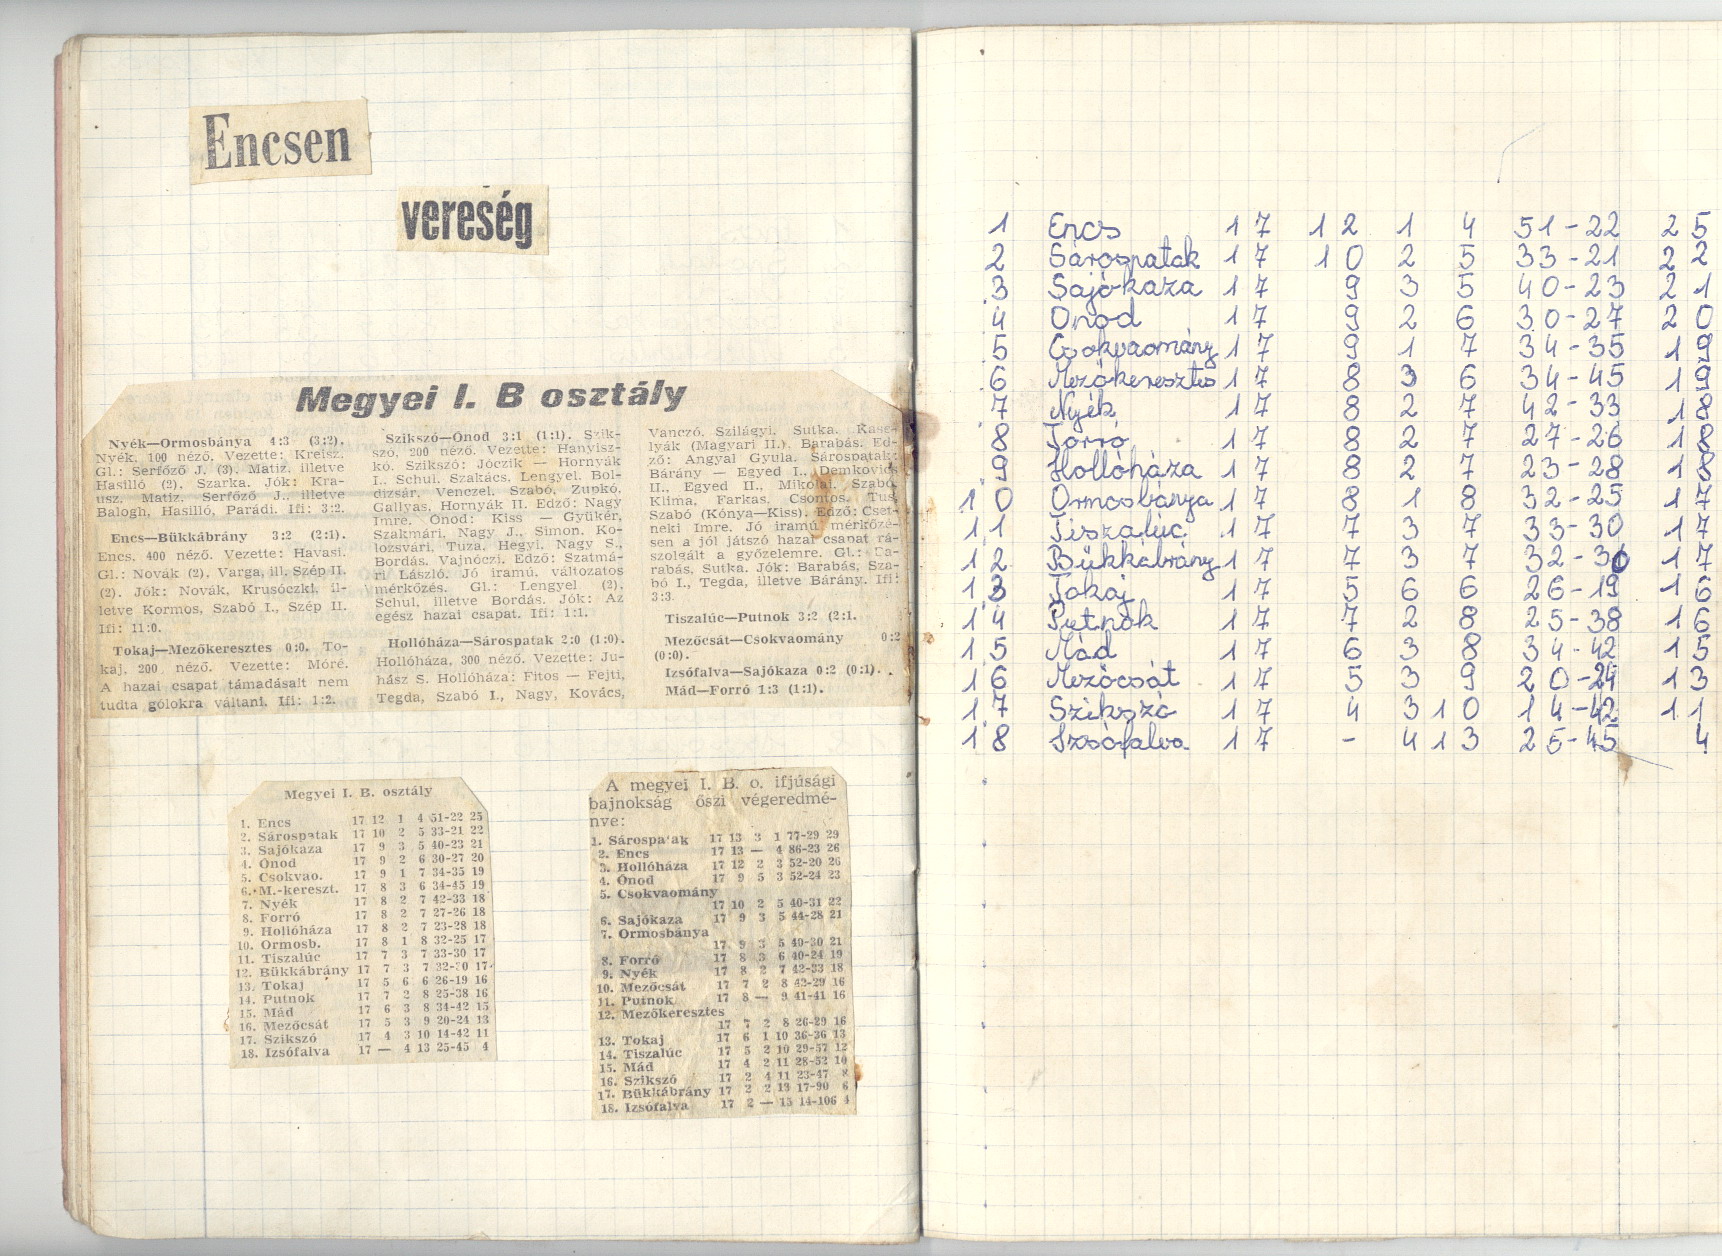 Encsen
vereség
Megyei I. B osztály
Nyék—Ormosbánya 4:3 (3:2).
Nyék, 100 néző. Vezette: Kreisz.
Gl.: Serfőző J. (3). Matiz, illetve
Hasilló (2), Szarka. Jók: Kra-
usz, Matiz, Serfőző J., illetve
Balogh, Hasilló, Parádi. Ifi: 3:2.
Encs—Bükkábrány 3:2 (2:1).
Encs, 400 néző. Vezette: Havasi.
Gl.: Novák (2), Varga, ill. Szép II.
(2). Jók: Novák, Krusóczki, il-
letve Kormos, Szabó I., Szép II.
Ifi: 11:0.
Tokaj—Mezőkeresztes 0:0. To-
kaj, 200 néző. Vezette: Móré.
A hazai csapat támadásait nem
tudta gólokra váltani. Ifi: 1:2.
Szikszó—Ónod 3:1 (1:1). Szik-
szó, 200 néző. Vezette: Hanyisz-
kó. Szikszó: Jóczik — Hornyák
I., Schul, Szakács, Lengyel, Bol-
dizsár, Venczel, Szabó, Zupkó,
Gallyas, Hornyák II. Edző: Nagy
Imre. Ónod: Kiss — Gyükér,
Szakmári, Nagy J., Simon, Ko-
lozsvári, Túza, Hegyi, Nagy S.,
Bordás, Vajnóczi. Edző: Szatmá-
ri László. Jó iramú, változatos
mérkőzés. Gl.: Lengyel (2),
Schul, illetve Bordás. Jók: Az
egész hazai csapat. Ifi: 1:1.
Hollóháza—Sárospatak 2:0 (1:0).
Hollóháza, 300 néző. Vezette: Ju-
hász S. Hollóháza: Fitos — Fejti,
Tegda, Szabó I., Nagy, Kovács,
Vanczó, Szilágyi, Sutka, Kase-
lyák (Magyari II.), Barabás. Ed-
ző: Angyal Gyula. Sárospatak:
Bárány — Egyed I., Demkovics
II., Egyed II., Mikolai, Szabó,
Klima, Farkas, Csontos, Tus,
Szabó (Kónya—Kiss). Edző: Cset-
neki Imre. Jó iramú mérkőzé-
sen a jól játszó hazai csapat rá-
szolgált a győzelemre. Gl.: Ba-
rabás, Sutka. Jók: Barabás, Sza-
bó I., Tegda, illetve Bárány. Ifi:
3:3.
Tiszalúc—Putnok 3:2 (2:1.
Mezőcsát—Csokvaomány 0:2
(0:0).
Izsófalva—Sajókaza 0:2 (0:1).
Mád—Forró 1:3 (1:1).
Megyei I. B. osztály
1. Encs 17 12 1 4 51-22 25
2. Sárospatak 17 10 2 5 33-21 22
3. Sajókaza 17 9 3 5 40-23 21
4. Ónod 17 9 2 6 30-27 20
5. Csokvao. 17 9 1 7 34-35 19
6. M.-kereszt. 17 8 3 6 34-45 19
7. Nyék 17 8 2 7 42-33 18
8. Forró 17 8 2 7 27-26 18
9. Hollóháza 17 8 2 7 23-28 18
10. Ormosb. 17 8 1 8 32-25 17
11. Tiszalúc 17 7 3 7 33-30 17
12. Bükkábrány 17 7 3 7 32-30 17
13. Tokaj 17 5 6 6 26-19 16
14. Putnok 17 7 2 8 25-38 16
15. Mád 17 6 3 8 34-42 15
16. Mezőcsát 17 5 3 9 20-24 13
17. Szikszó 17 4 3 10 14-42 11
18. Izsófalva 17 — 4 13 25-45 4
A megyei I. B. o. ifjúsági
bajnokság őszi végeredmé-
nye:
1. Sárospa'ak 17 13 3 1 77-29 29
2. Encs 17 13 — 4 86-23 26
3. Hollóháza 17 12 2 3 52-20 26
4. Ónod 17 9 5 3 52-24 23
5. Csokvaomány
17 10 2 5 40-31 22
6. Sajókaza 17 9 3 5 44-28 21
7. Ormosbánya
17 9 3 5 40-30 21
8. Forró 17 8 3 6 40-24 19
9. Nyék 17 8 2 7 42-33 18
10. Mezőcsát 17 7 2 8 43-29 16
11. Putnok 17 8 — 9 41-41 16
12. Mezőkeresztes
17 7 2 8 26-29 16
13. Tokaj 17 6 1 10 36-36 13
14. Tiszalúc 17 5 2 10 29-57 12
15. Mád 17 4 2 11 28-52 10
16. Szikszó 17 2 4 11 23-47 8
17. Bükkábrány 17 2 2 13 17-90 6
18. Izsófalva 17 2 — 15 14-106 4
1 Encs 17 12 1 4 51-22 25
2 Sárospatak 17 10 2 5 33-21 22
3 Sajókaza 17 9 3 5 40-23 21
4 Ónod 17 9 2 6 30-27 20
5 Csokvaomány 17 9 1 7 34-35 19
6 Mezőkeresztes 17 8 3 6 34-45 19
7 Nyék 17 8 2 7 42-33 18
8 Forró 17 8 2 7 27-26 18
9 Hollóháza 17 8 2 7 23-28 18
10 Ormosbánya 17 8 1 8 32-25 17
11 Tiszalúc 17 7 3 7 33-30 17
12 Bükkábrány 17 7 3 7 32-30 17
13 Tokaj 17 5 6 6 26-19 16
14 Putnok 17 7 2 8 25-38 16
15 Mád 17 6 3 8 34-42 15
16 Mezőcsát 17 5 3 9 20-24 13
17 Szikszó 17 4 3 10 14-42 11
18 Izsófalva 17 - 4 13 25-45 4